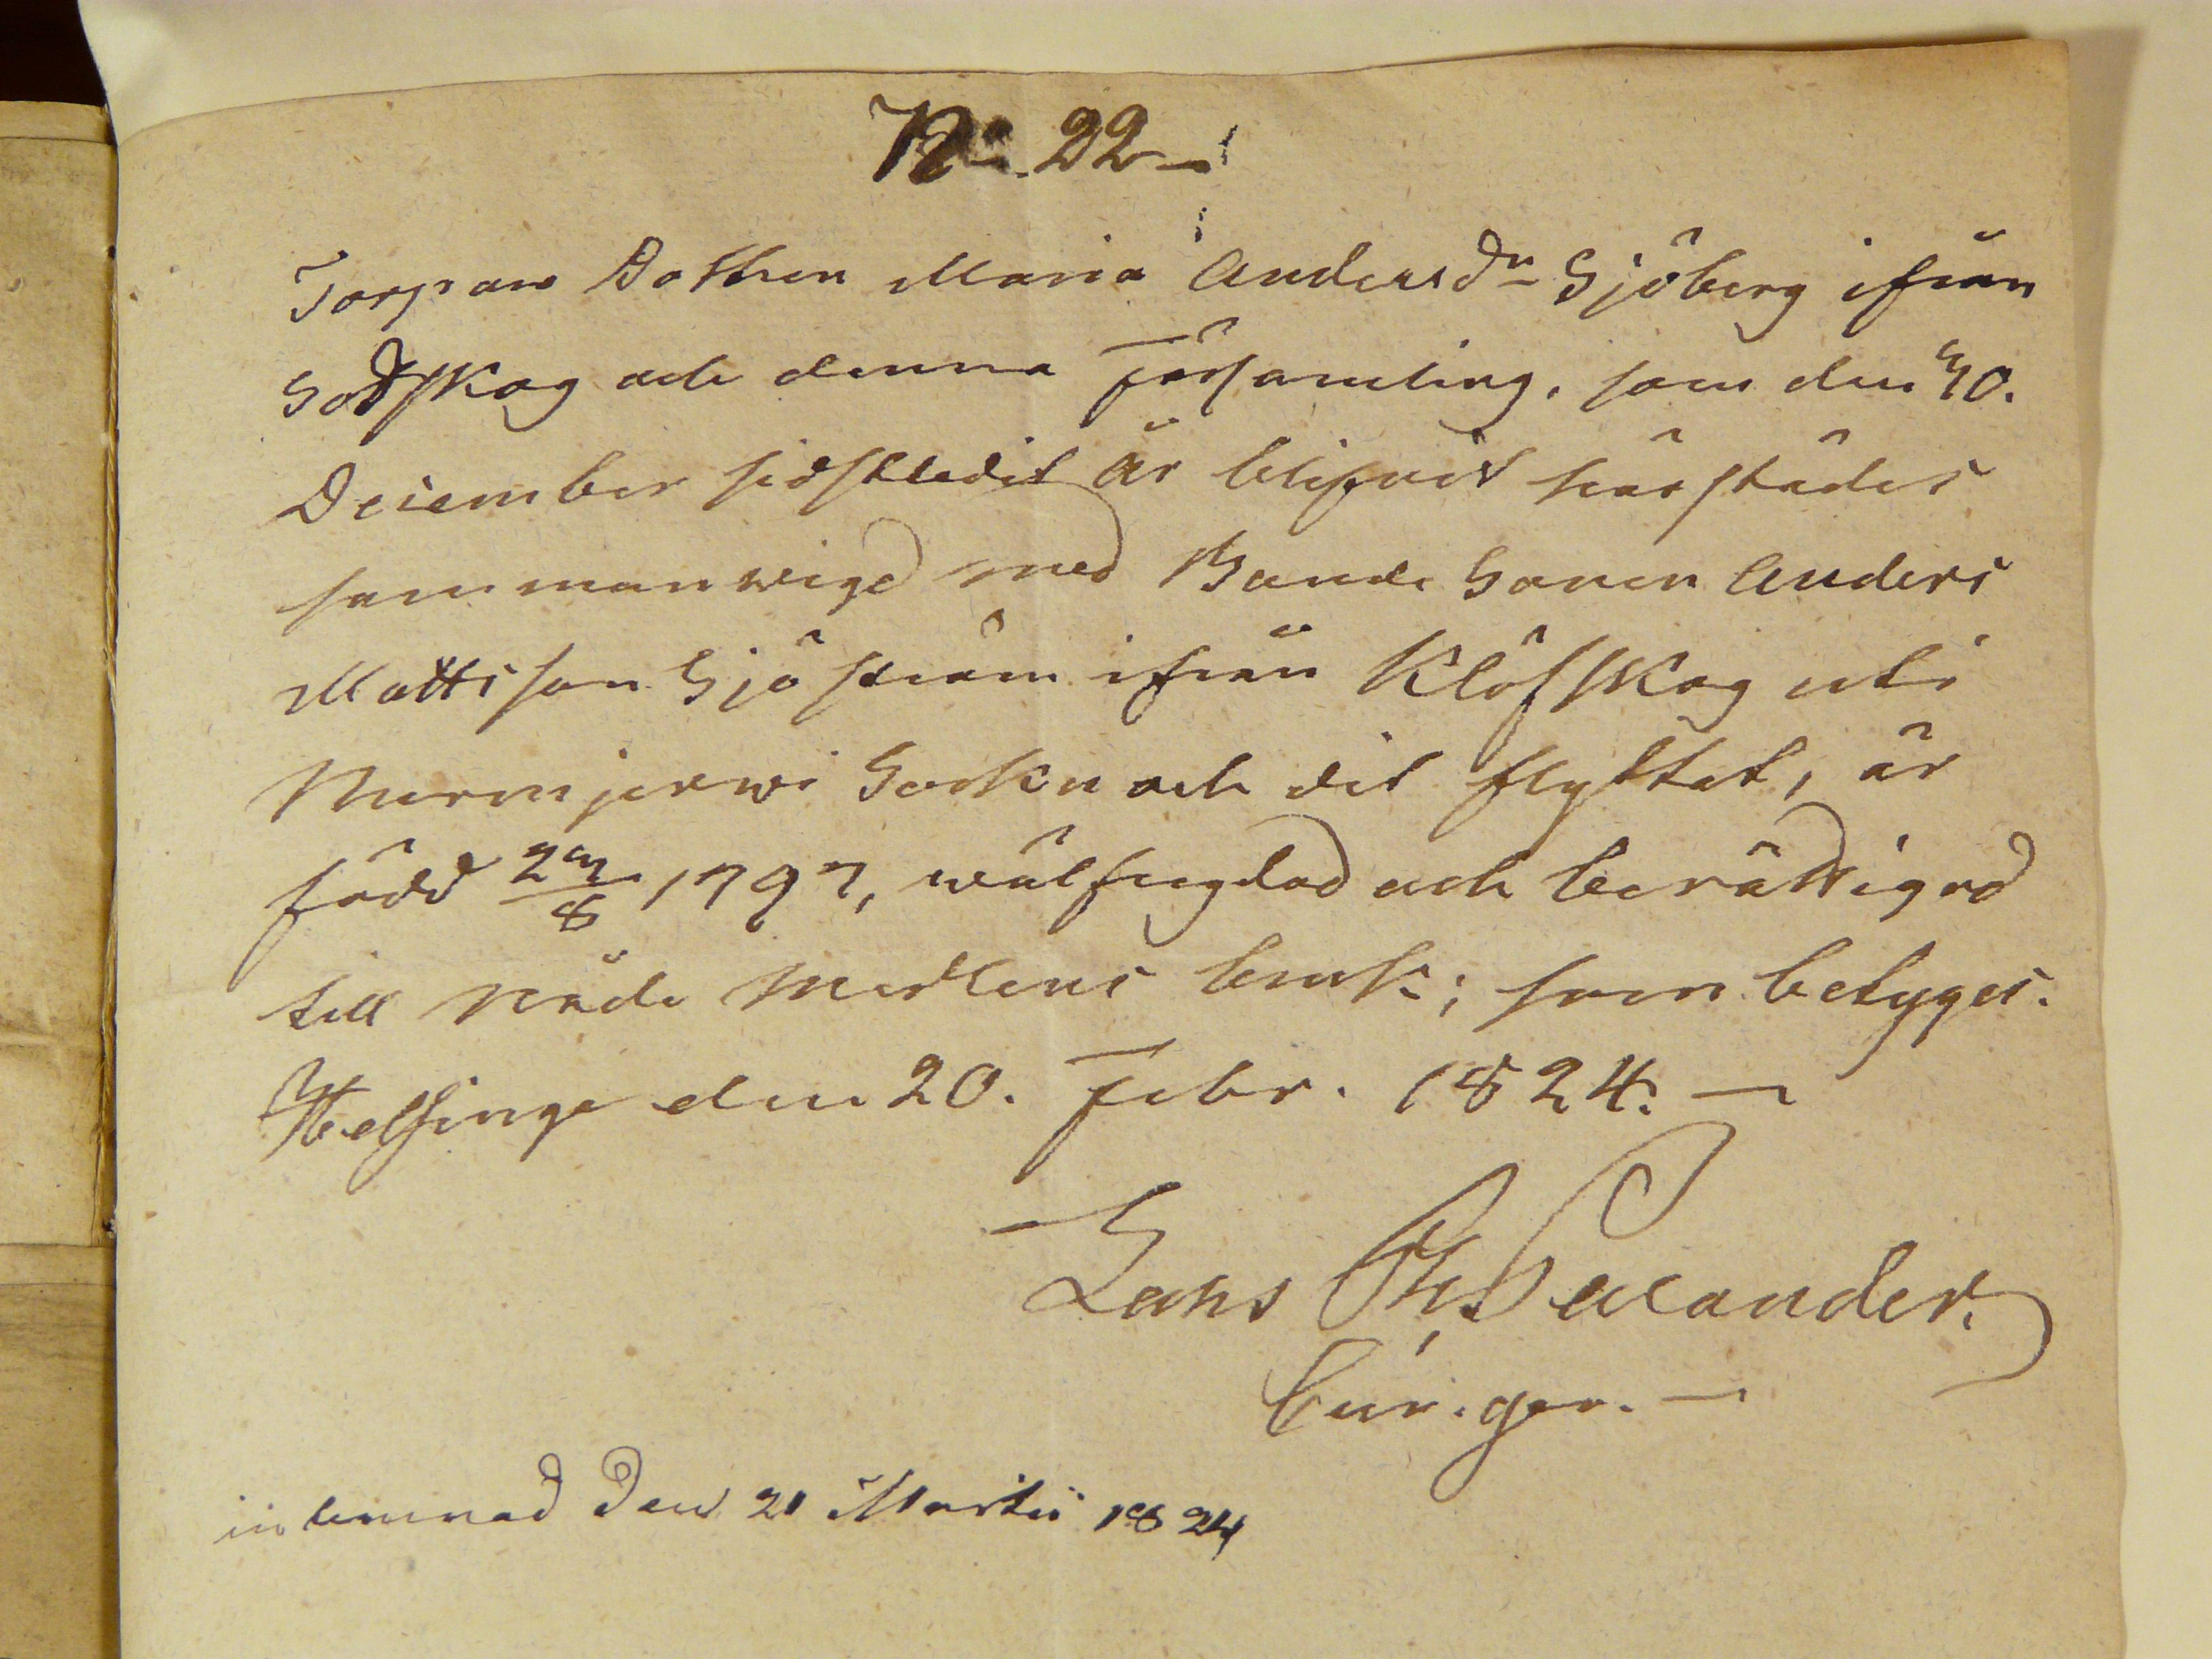 No 22
Torpare Dottren Maria Andersdr Sjöberg ifrån
Sottskog och denna Församling, som den 30.
December sidstledit År blifvit härstädes
sammanwigd med Bonde Sonen Anders
Mattsson Sjöström ifrån Klöfskog uti
Nurmijerwi Sockn och dit flyttat, är
född 23/8 1797, wälfregdad och berättigad
till Nåde Medlens bruk; som betyges.
Helsinge den 20. Febr. 1824.
Lars
Cur. ger.
inlemnad Den 21 Martii 1824